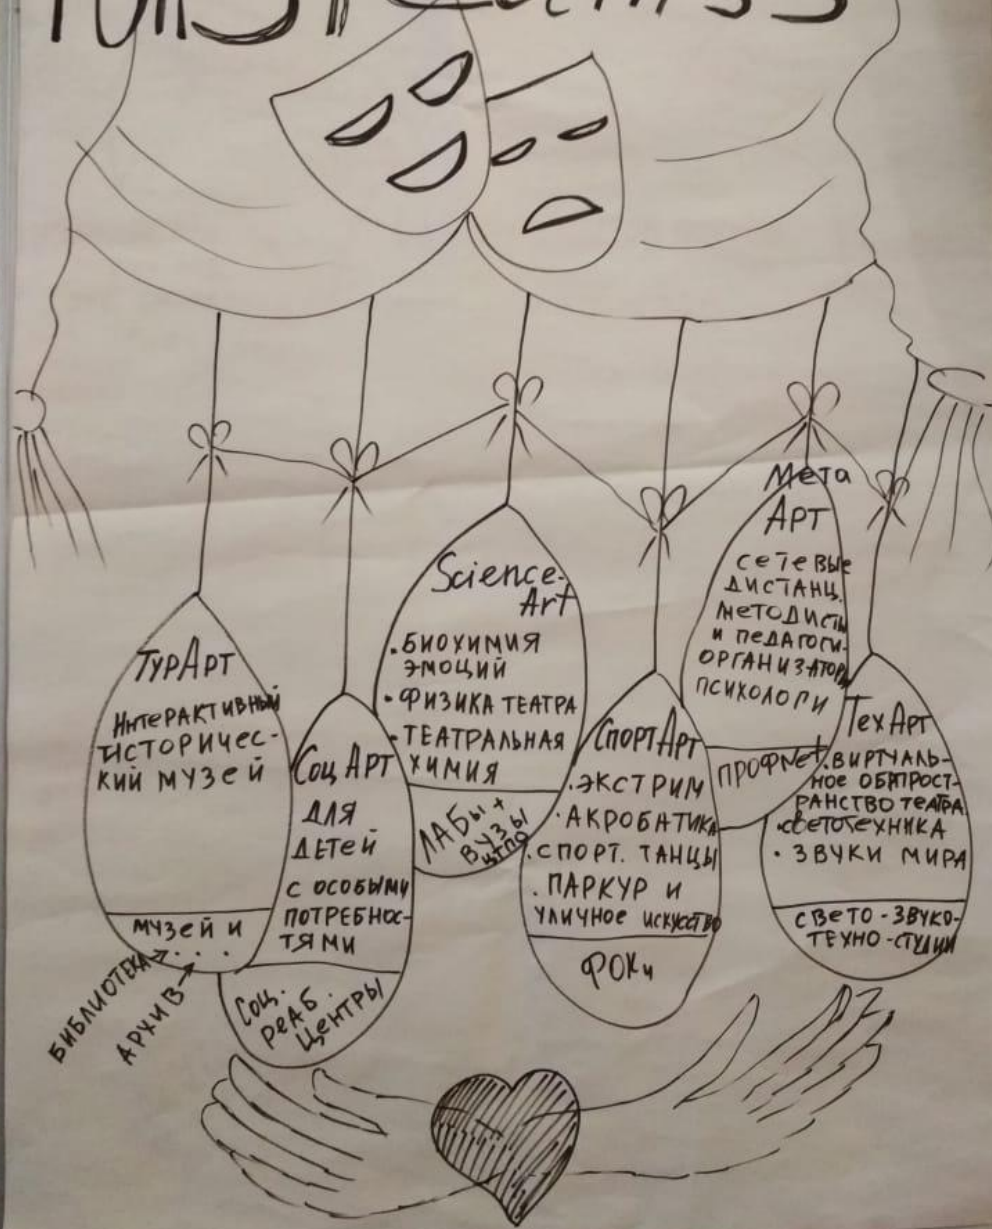 ТурАрт
Интерактивный
историчес-
кий музей
музей и
. . .
библиотека
архив
Соц Арт
для
детей
с особыми
потребнос-
тями
Соц.
реаб.
центры
Science-
Art
• биохимия
эмоций
• физика театра
• театральная
химия
Лабы +
вузы
СпортАрт
• экстрим
• акробатика
• спорт. танцы
• паркур и
уличное искусство
ФОКи
Мета
Арт
сетевые
дистанц.
методисты
и педагоги-
организаторы
психологи
ПрофNet
ТехАрт
• виртуаль-
ное обрпрост-
ранство театра
• светотехника
• звуки мира
свето-звуко-
техно-студии